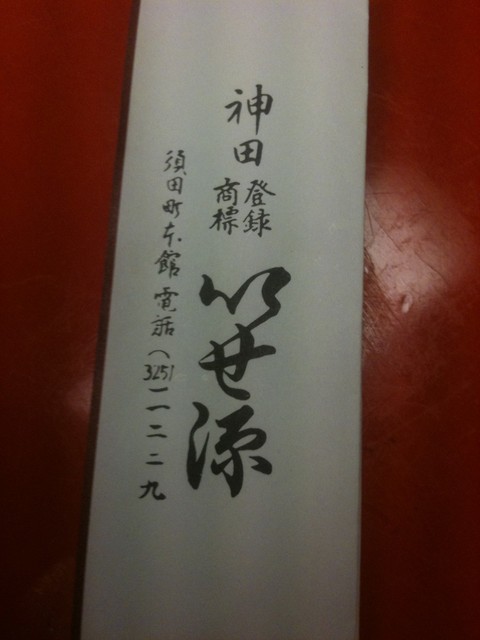 神田
登録
商標
いせ源
須田町本館 電話(3251)一二二九